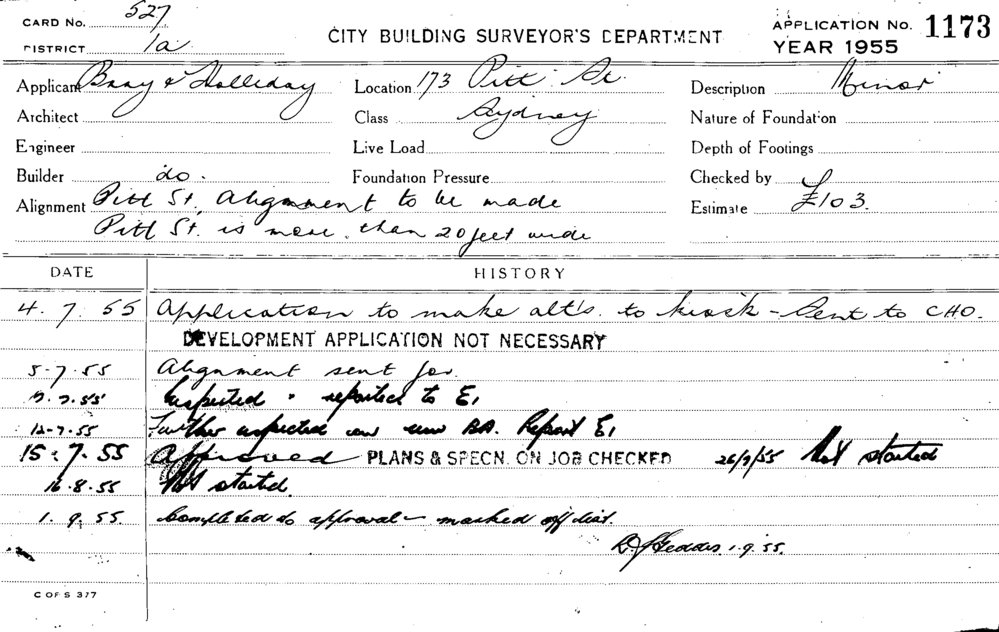 CARD NO. 527
DISTRICT 1a
CITY BUILDING SURVEYOR'S DEPARTMENT
APPLICATION NO. 1173
YEAR 1955
Applicant Bray & Holliday
Location 173 Pitt St.
Description Minor
Architect
Class Sydney
Nature of Foundation
Engineer
Live Load
Depth of Footings
Builder do.
Foundation Pressure
Checked by
Alignment Pitt St. Alignment to be made
Estimate £103.
Pitt St. is more than 20 feet wide
DATE HISTORY
4. 7. 55 Application to make alt's. to kiosk - Sent to CHO.
DEVELOPMENT APPLICATION NOT NECESSARY
5-7-55 Alignment sent for.
7.7.55 Inspected & reported to E1
12-7-55 Further inspected on new BA. Report E1
15.7.55 Approved PLANS & SPECN. ON JOB CHECKED 26/7/55 Not started
16.8.55 Not started.
1.9.55. Completed to approval - marked off dist.
1.9.55.
C OF S 377